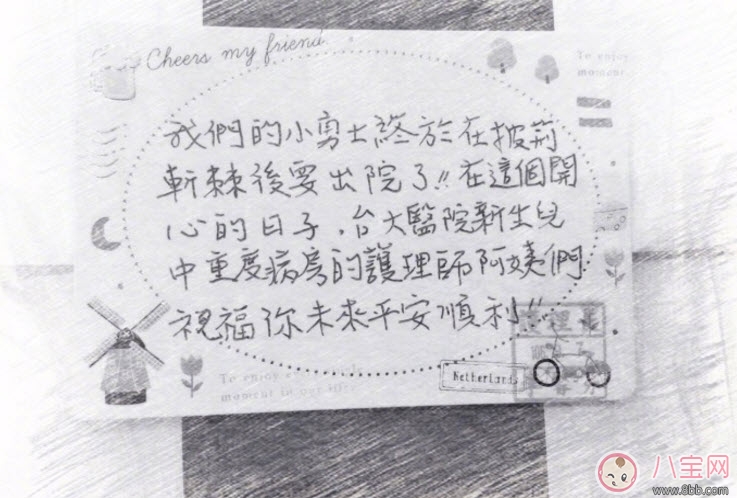 Cheers my friend.
To enjoy
moment
我們的小勇士終於在披荊
斬棘後要出院了!!在這個開
心的日子,台大醫院新生兒
中重度病房的護理師阿姨們
祝福你未來平安順利!!
To enjoy
moment in our
Netherlands
八宝网
www.8bb.com